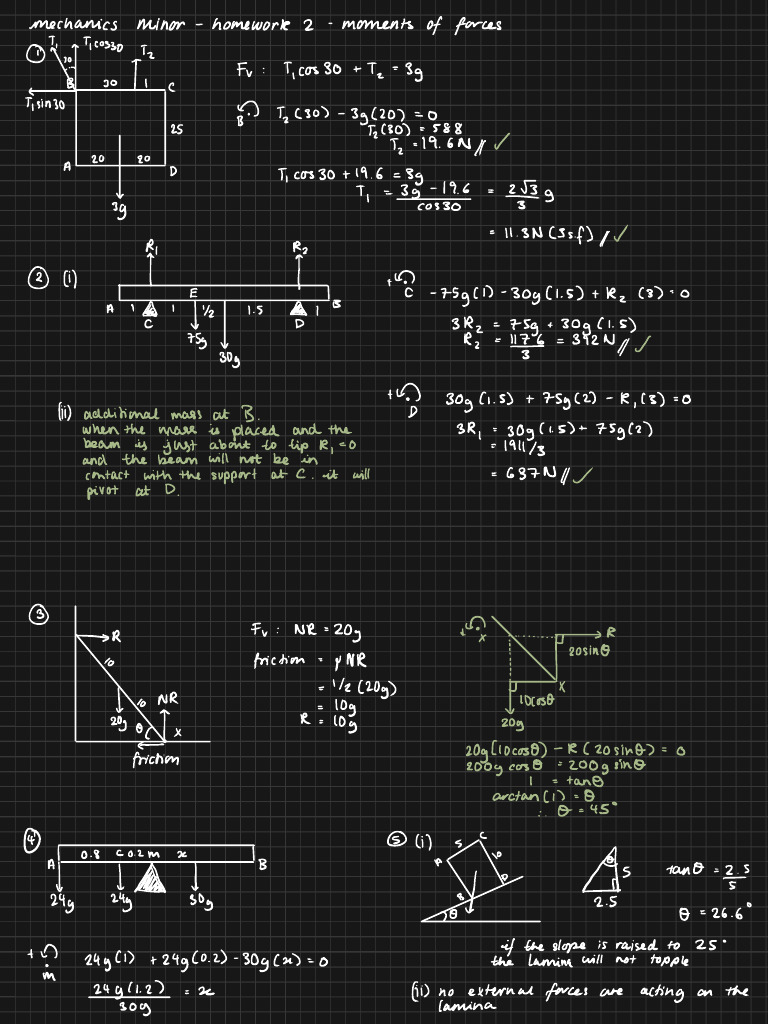 mechanics minor - homework 2 - moments of forces
①
T₁ T₁cos30 T₂
30
B 30 1 C
T₁sin30
25
A 20 20 D
3g
Fv : T₁cos30 + T₂ = 3g
B T₂(30) - 3g(20) = 0
T₂(30) = 588
T₂ = 19.6N // ✓
T₁cos30 + 19.6 = 3g
T₁ = (3g - 19.6)/cos30 = (2√3/3) g
= 11.3N (3sf) // ✓
② (i)
R₁ R₂
E
A 1 1 1/2 1.5 1 B
C D
75g
30g
+ C -75g(1) - 30g(1.5) + R₂ (3) = 0
3R₂ = 75g + 30g(1.5)
R₂ = 1176/3 = 392N // ✓
+ D 30g(1.5) + 75g(2) - R₁(3) = 0
3R₁ = 30g(1.5) + 75g(2)
= 1911/3
= 637N // ✓
(ii) additional mass at B.
when the mass is placed and the
beam is just about to tip R₁ = 0
and the beam will not be in
contact with the support at C. it will
pivot at D.
③
R
10
10 NR
20g θ X
friction
Fv : NR = 20g
friction = μNR
= 1/2 (20g)
= 10g
R = 10g
+ X
R
20sinθ
X
10cosθ
20g
20g(10cosθ) - R(20sinθ) = 0
200g cosθ = 200g sinθ
1 = tanθ
arctan(1) = θ
∴ θ = 45°
④
A 0.8 C 0.2 m x B
24g 24g 30g
+ m 24g(1) + 24g(0.2) - 30g(x) = 0
24g(1.2)/30g = x
⑤ (i)
C
5
A 10
D
B
θ
θ
5
2.5
tanθ = 2.5/5
θ = 26.6°
if the slope is raised to 25°
the lamina will not topple
(ii) no external forces are acting on the
lamina